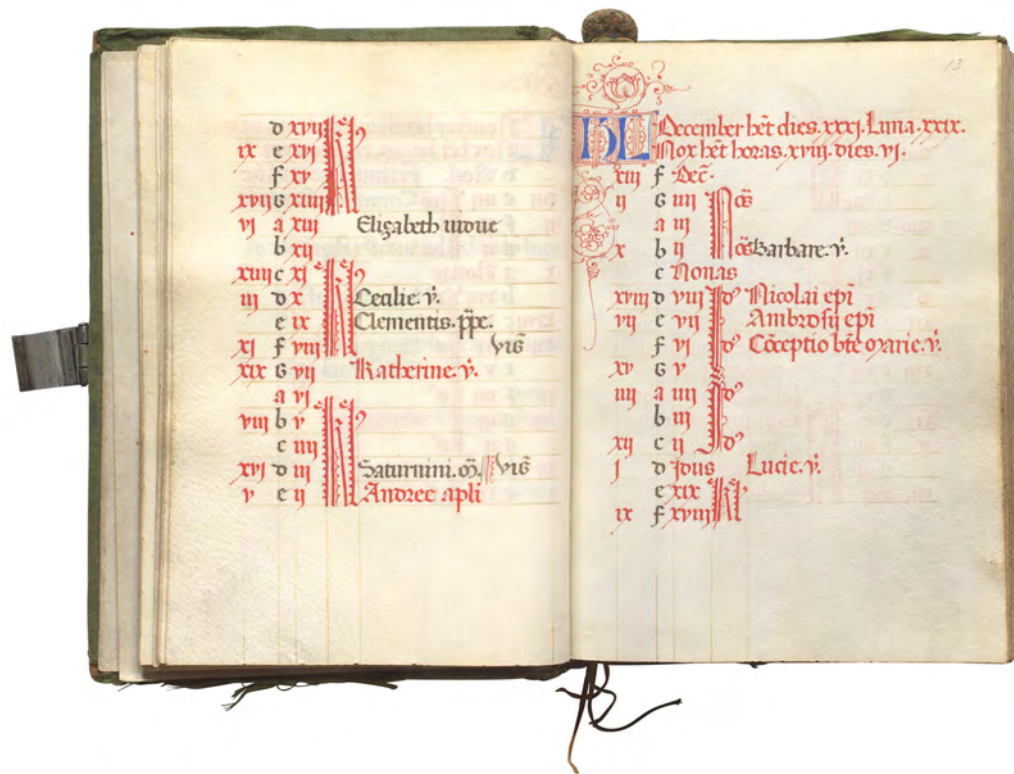 d xvii kl'
ix e xvi
f xv
xvii G xiiii
vi a xiii Elizabeth vidue
b xii
xiiii c xi kl'
iii d x Cecilie. v̄.
e ix Clementis. p̄pe.
xi f viii vig̅
xix G vii Katherine. v̄.
a vi
viii b v kl'
c iiii
xvi d iii Saturnini. m̄. vig̅
v e ii Andree apl̄i
13
KL December h̄et dies. xxxj. Luna. xxix.
Nox h̄et horas. xviii. dies. vj.
xiii f Dec̄.
ii G iiii No͞s
a iii
x b ii No͞s Barbare. v̄.
c Nonas
xviii d viii Id' Nicolai ep̄i
vii e vii Id' Ambrosij ep̄i
f vj Id' Cōceptio b̄te marie. v̄.
xv G v
iiii a iiii Id'
b iii
xii c ii Id'
j d Idus Lucie. v̄.
e xix kl'
ix f xviii